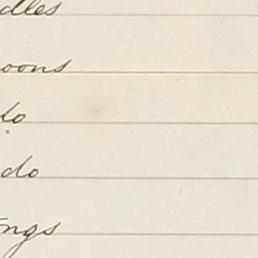 dles
oons
do
do
ngs